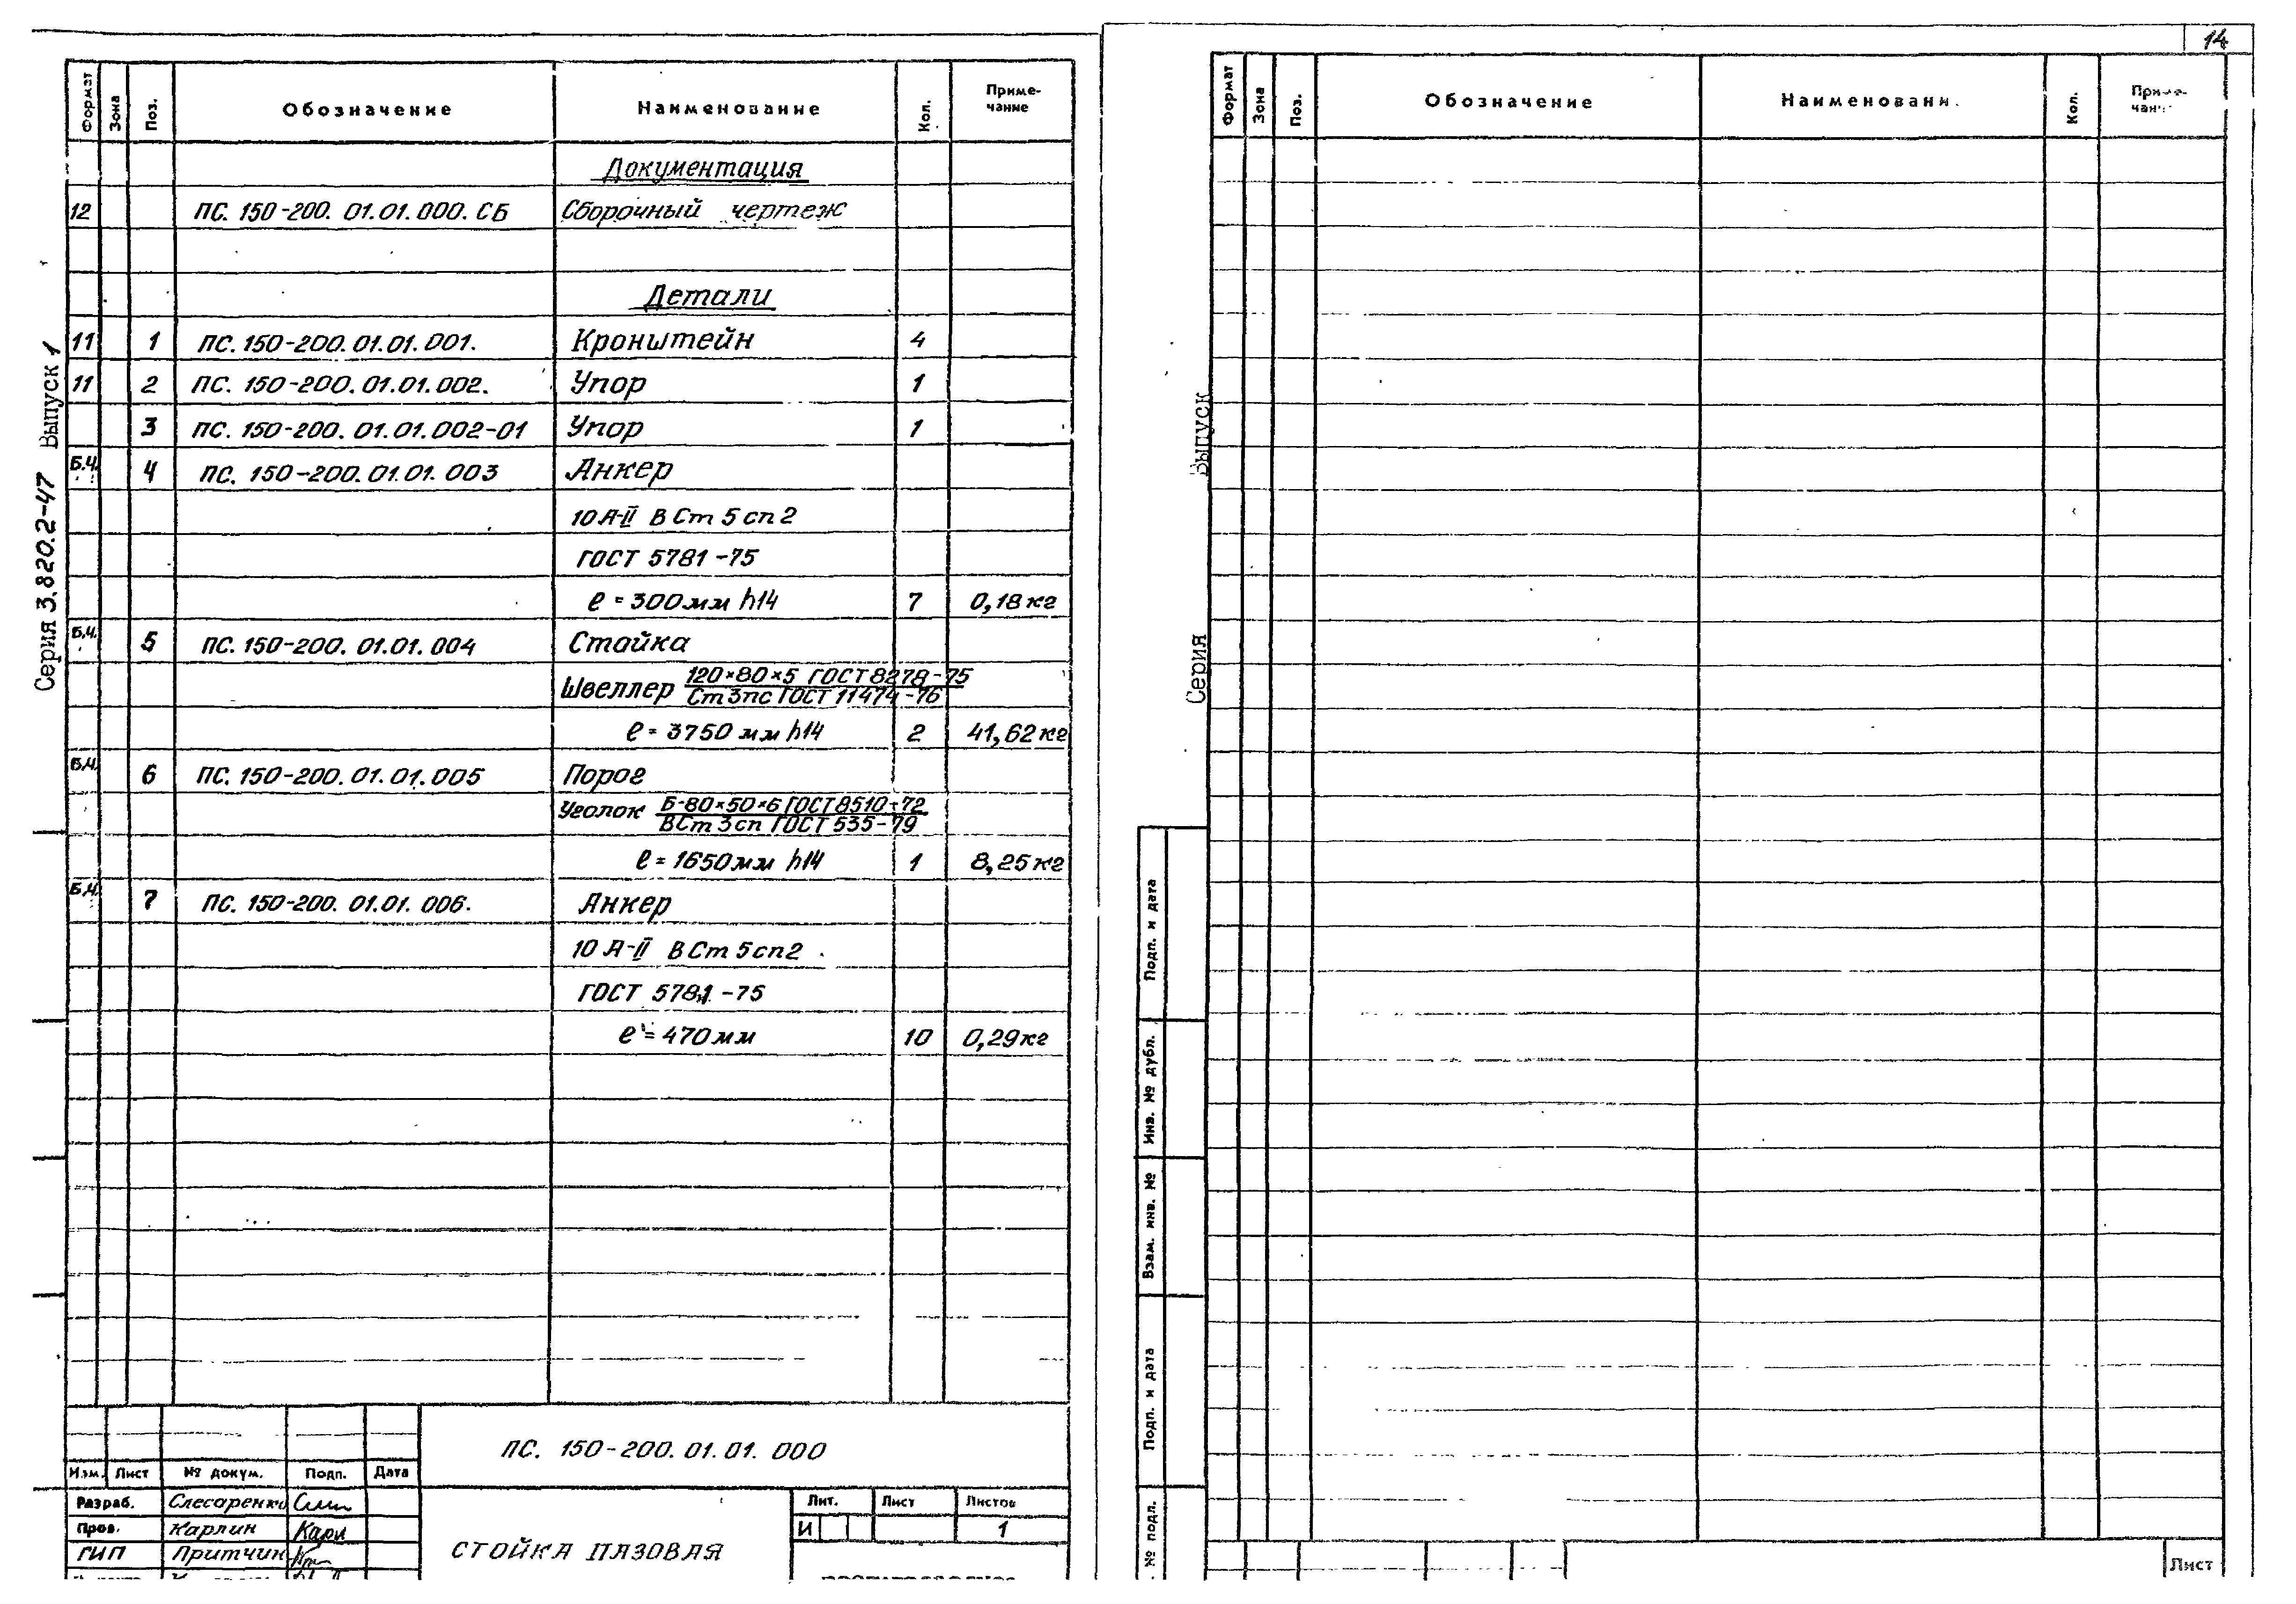 14
Формат Зона Поз. Обозначение Наименование Кол. Приме-
чание
Документация
12 ПС. 150-200. 01.01.000. СБ Сборочный чертеж
Детали
11 1 ПС. 150-200. 01.01. 001. Кронштейн 4
11 2 ПС. 150-200. 01.01. 002. Упор 1
3 ПС. 150-200. 01.01.002-01 Упор 1
Б.Ч. 4 ПС. 150-200. 01.01. 003 Анкер
10 А-II ВСт 5 сп 2
ГОСТ 5781-75
ℓ = 300мм h14 7 0,18 кг
Б.Ч. 5 ПС. 150-200. 01.01. 004 Стойка
Швеллер 120×80×5 ГОСТ 8278-75
Ст 3пс ГОСТ 11474-76
ℓ = 3750 мм h14 2 41,62 кг
Б.Ч. 6 ПС. 150-200. 01.01. 005 Порог
Уголок Б-80×50×6 ГОСТ 8510-72
ВСт 3 сп ГОСТ 535-79
ℓ = 1650мм h14 1 8,25 кг
Б.Ч. 7 ПС. 150-200. 01.01. 006. Анкер
10 А-II ВСт 5сп2
ГОСТ 5781-75
ℓ = 470мм 10 0,29кг
Серия 3.820.2-47 Выпуск 1
ПС. 150-200. 01.01. 000
Изм. Лист № докум. Подп. Дата
Разраб. Слесаренко
Пров. Карлин
ГИП Притчин
СТОЙКА ПАЗОВАЯ
Лит. Лист Листов
И 1
Формат Зона Поз. Обозначение Наименовани. Кол. Приме-
чание
Серия Выпуск
Подп. и дата
Инв. № дубл.
Взам. инв. №
Подп. и дата
№ подл.
Лист